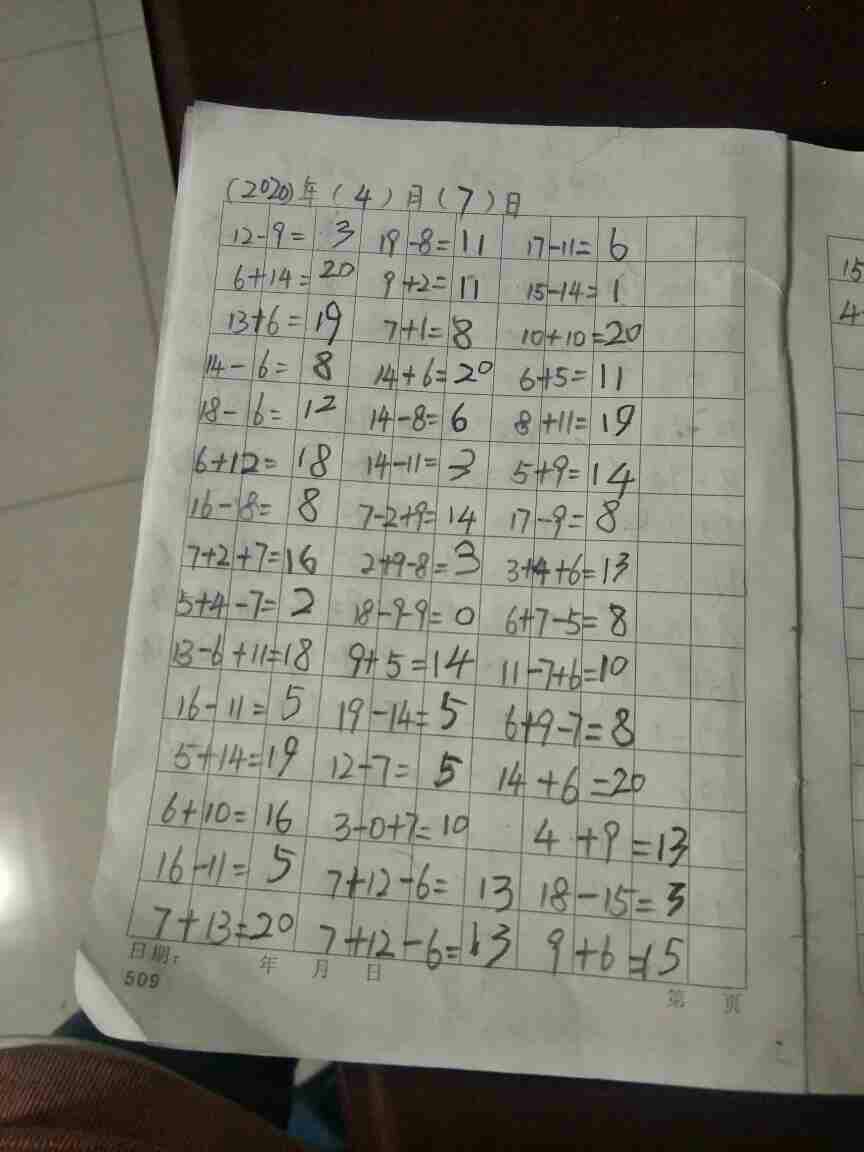 (2020)年(4)月(7)日
12-9=3 19-8=11 17-11=6
6+14=20 9+2=11 15-14=1
13+6=19 7+1=8 10+10=20
14-6=8 14+6=20 6+5=11
18-6=12 14-8=6 8+11=19
6+12=18 14-11=3 5+9=14
16-18=8 7-2+9=14 17-9=8
7+2+7=16 2+9-8=3 3+4+6=13
5+4-7=2 18-9-9=0 6+7-5=8
13-6+11=18 9+5=14 11-7+6=10
16-11=5 19-14=5 6+9-7=8
5+14=19 12-7=5 14+6=20
6+10=16 3-0+7=10 4+9=13
16-11=5 7+12-6=13 18-15=3
7+13=20 7+12-6=13 9+6=15
日期: 年 月 日
509 第 页
15
4